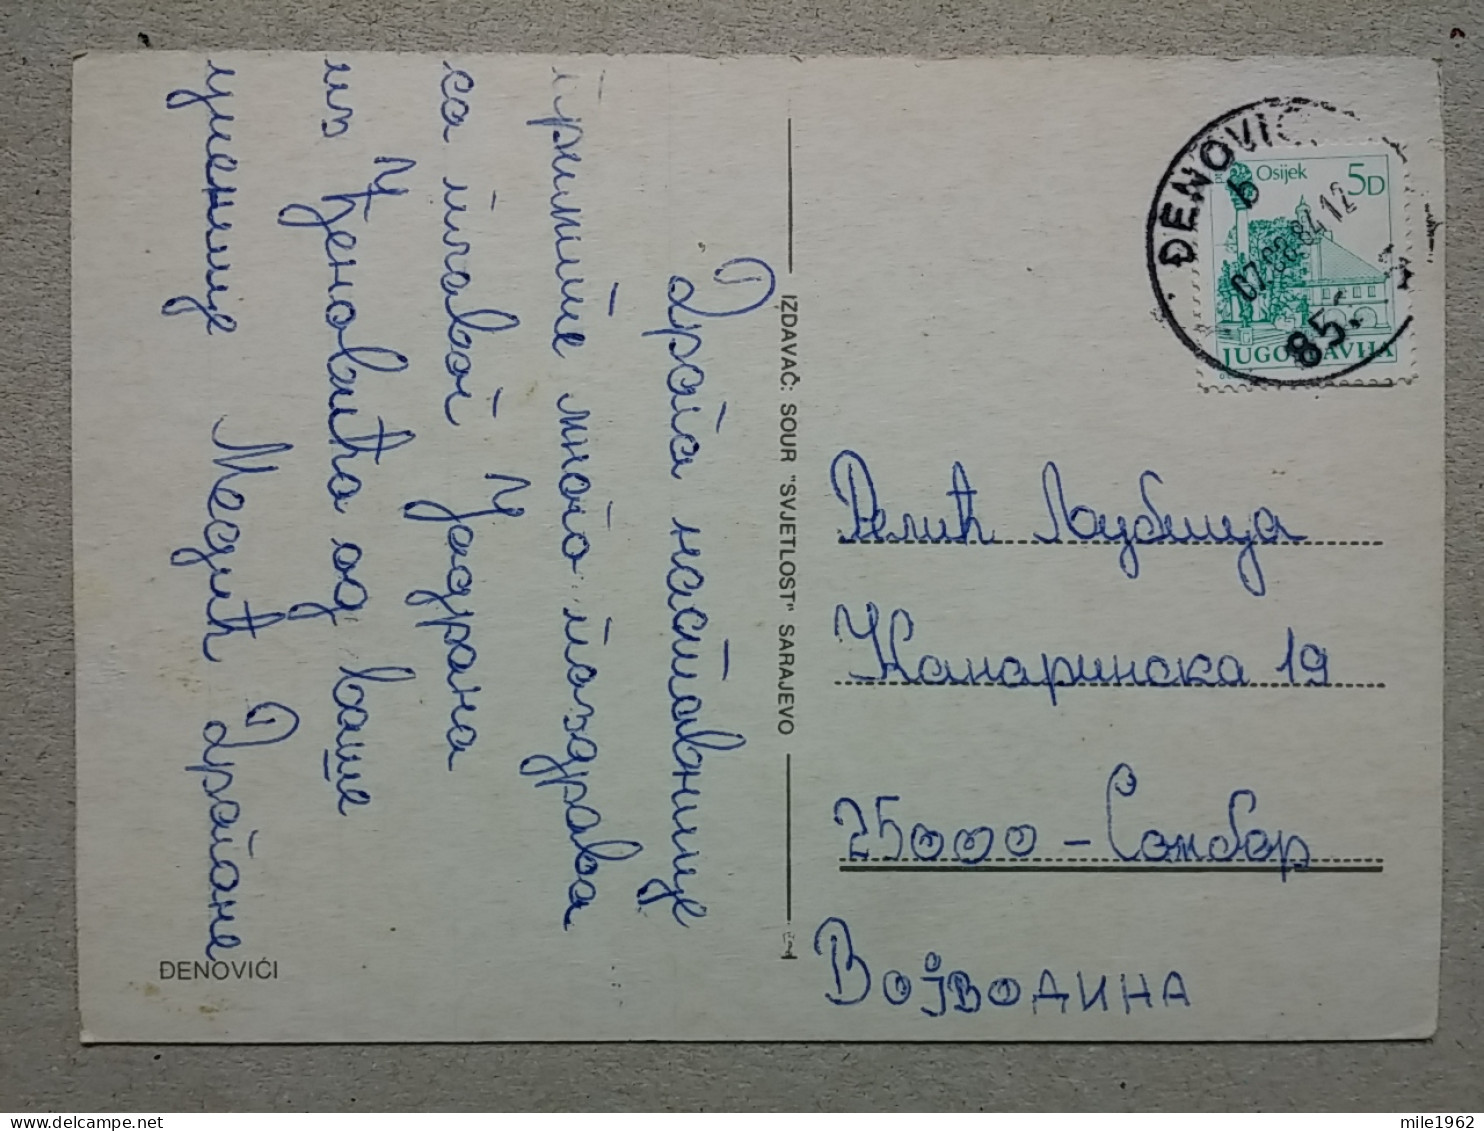 Драга наставнице
примите много поздрава
са плавог Јадрана
из Ђеновића од ваше
ученице Медић Драгане
ĐENOVIĆI
IZDAVAČ: SOUR "SVJETLOST" SARAJEVO
Osijek 5D
JUGOSLAVIJA
ĐENOVIĆI
b
07.08.84.12
85
Делић Љубица
Канаринска 19
25000 - Сомбор
Војводина
mile1962